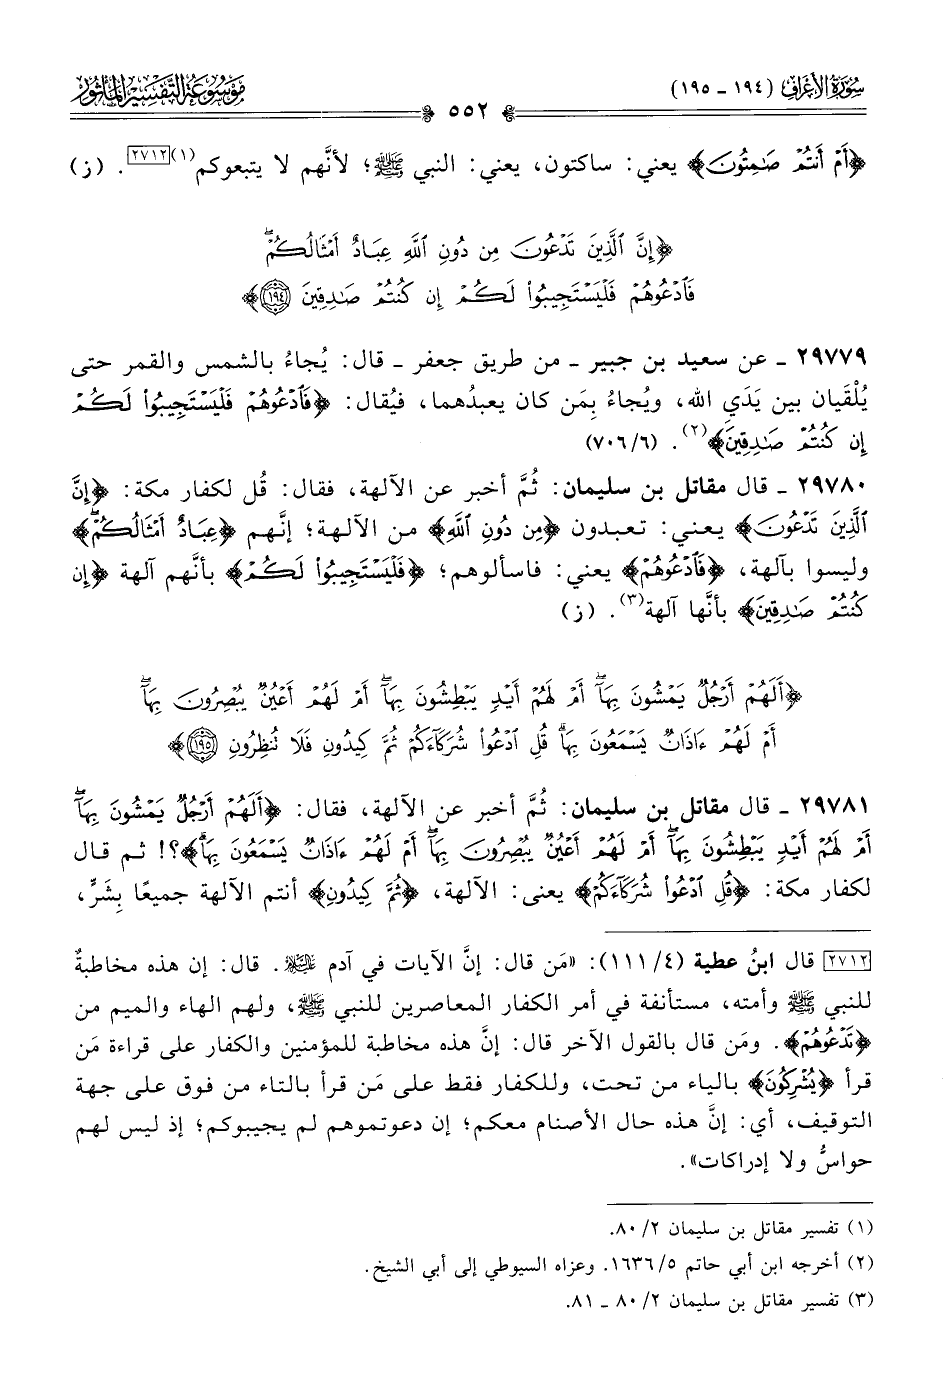 سُورَةُ الأَعْرَافِ (١٩٤ - ١٩٥)
مَوْسُوعَةُ التَّفْسِيرِ المَأْثُورِ
٥٥٢
﴿أَمْ أَنتُمْ صَٰمِتُونَ﴾ يعني: ساكتون، يعني: النبي ﷺ؛ لأنَّهم لا يتبعوكم(١)[٢٧١٢]. (ز)
﴿إِنَّ ٱلَّذِينَ تَدْعُونَ مِن دُونِ ٱللَّهِ عِبَادٌ أَمْثَالُكُمْۖ
فَٱدْعُوهُمْ فَلْيَسْتَجِيبُوا۟ لَكُمْ إِن كُنتُمْ صَٰدِقِينَ ١٩٤﴾
٢٩٧٧٩ - عن سعيد بن جبير - من طريق جعفر - قال: يُجاءُ بالشمس والقمر حتى
يُلْقَيان بين يَدَيِ الله، ويُجاءُ بِمَن كان يعبدُهما، فيُقال: ﴿فَٱدْعُوهُمْ فَلْيَسْتَجِيبُوا۟ لَكُمْ
إِن كُنتُمْ صَٰدِقِينَ﴾(٢). (٦/ ٧٠٦)
٢٩٧٨٠ - قال مقاتل بن سليمان: ثُمَّ أخبر عن الآلهة، فقال: قُل لكفار مكة: ﴿إِنَّ
ٱلَّذِينَ تَدْعُونَ﴾ يعني: تعبدون ﴿مِن دُونِ ٱللَّهِ﴾ من الآلهة؛ إنَّهم ﴿عِبَادٌ أَمْثَالُكُمْۖ﴾
وليسوا بآلهة، ﴿فَٱدْعُوهُمْ﴾ يعني: فاسألوهم؛ ﴿فَلْيَسْتَجِيبُوا۟ لَكُمْ﴾ بأنَّهم آلهة ﴿إِن
كُنتُمْ صَٰدِقِينَ﴾ بأنَّها آلهة(٣). (ز)
﴿أَلَهُمْ أَرْجُلٌ يَمْشُونَ بِهَآۖ أَمْ لَهُمْ أَيْدٍ يَبْطِشُونَ بِهَآۖ أَمْ لَهُمْ أَعْيُنٌ يُبْصِرُونَ بِهَآ
أَمْ لَهُمْ ءَاذَانٌ يَسْمَعُونَ بِهَاۗ قُلِ ٱدْعُوا۟ شُرَكَآءَكُمْ ثُمَّ كِيدُونِ فَلَا تُنظِرُونِ ١٩٥﴾
٢٩٧٨١ - قال مقاتل بن سليمان: ثُمَّ أخبر عن الآلهة، فقال: ﴿أَلَهُمْ أَرْجُلٌ يَمْشُونَ بِهَآۖ
أَمْ لَهُمْ أَيْدٍ يَبْطِشُونَ بِهَآۖ أَمْ لَهُمْ أَعْيُنٌ يُبْصِرُونَ بِهَآۖ أَمْ لَهُمْ ءَاذَانٌ يَسْمَعُونَ بِهَاۗ﴾؟! ثم قال
لكفار مكة: ﴿قُلِ ٱدْعُوا۟ شُرَكَآءَكُمْ﴾ يعني: الآلهة، ﴿ثُمَّ كِيدُونِ﴾ أنتم الآلهة جميعًا بِشَرٍّ،
[٢٧١٢] قال ابنُ عطية (٤/ ١١١): «مَن قال: إنَّ الآيات في آدم عليه السلام. قال: إن هذه مخاطبةٌ
للنبي ﷺ وأمته، مستأنفة في أمر الكفار المعاصرين للنبي ﷺ، ولهم الهاء والميم من
﴿تَدْعُوهُمْ﴾. ومَن قال بالقول الآخر قال: إنَّ هذه مخاطبة للمؤمنين والكفار على قراءة مَن
قرأ ﴿يُشْرِكُونَ﴾ بالياء من تحت، وللكفار فقط على مَن قرأ بالتاء من فوق على جهة
التوقيف، أي: إنَّ هذه حال الأصنام معكم؛ إن دعوتموهم لم يجيبوكم؛ إذ ليس لهم
حواسُّ ولا إدراكات».
(١) تفسير مقاتل بن سليمان ٨٠/٢.
(٢) أخرجه ابن أبي حاتم ٥/ ١٦٣٦. وعزاه السيوطي إلى أبي الشيخ.
(٣) تفسير مقاتل بن سليمان ٢/ ٨٠ - ٨١.